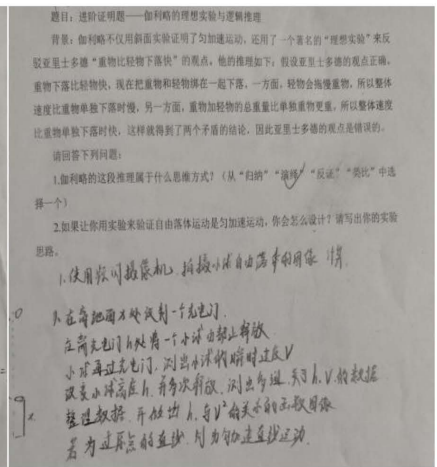 题目：进阶证明题——伽利略的理想实验与逻辑推理
背景：伽利略不仅用斜面实验证明了匀加速运动，还用了一个著名的“理想实验”来反
驳亚里士多德“重物比轻物下落快”的观点。他的推理如下：假设亚里士多德的观点正确，
重物下落比轻物快，现在把重物和轻物绑在一起下落，一方面，轻物会拖慢重物，所以整体
速度比重物单独下落时慢，另一方面，重物加轻物的总重量比单独重物更重，所以整体速度
比重物单独下落时快，这样就得到了两个矛盾的结论，因此亚里士多德的观点是错误的。
请回答下列问题：
1.伽利略的这段推理属于什么思维方式？（从“归纳”“演绎”“反证”“类比”中选
择一个）
2.如果让你用实验来验证自由落体运动是匀加速运动，你会怎么设计？请写出你的实验
思路。
1.使用频闪摄像机，拍摄小球自由落体的图像
在高地面 处设到一个光电门
在离光电门h处将一个小球由静止释放
小球再过光电门，测出小球的瞬时速度V
改变小球高度h，并多次释放，测出多组，关于h、V的数据
整理数据，并做出h，与V²的关系的函数图像
若为过原点的直线，则为匀加速直线运动